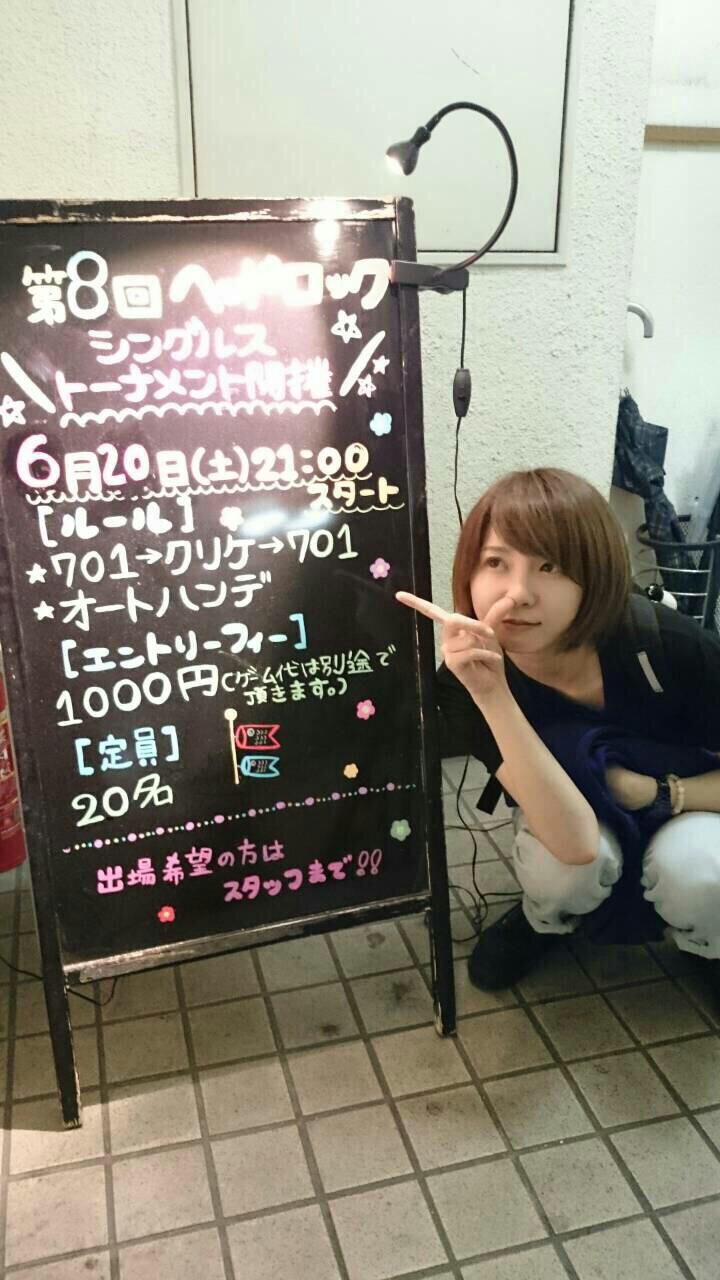 第8回 ヘッドロック
シングルス
トーナメント開催
6月20日(土)21:00
スタート
[ルール]
★701→クリケ→701
★オートハンデ
[エントリーフィー]
1000円(ゲーム代は別途で
頂きます。)
[定員]
20名
出場希望の方は
スタッフまで!!